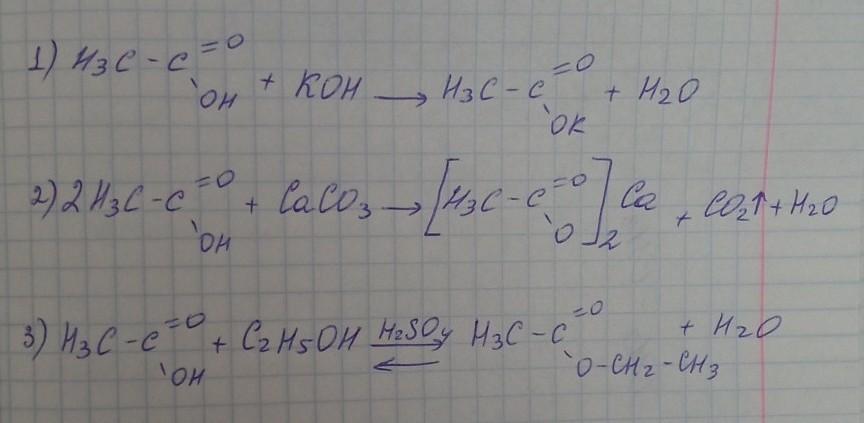 1) H3C-C=O OH + KOH → H3C-C=O OK + H2O
2) 2H3C-C=O OH + CaCO3 → [H3C-C=O O]2 Ca + CO2↑ + H2O
3) H3C-C=O OH + C2H5OH ⇄ H2SO4 H3C-C=O O-CH2-CH3 + H2O